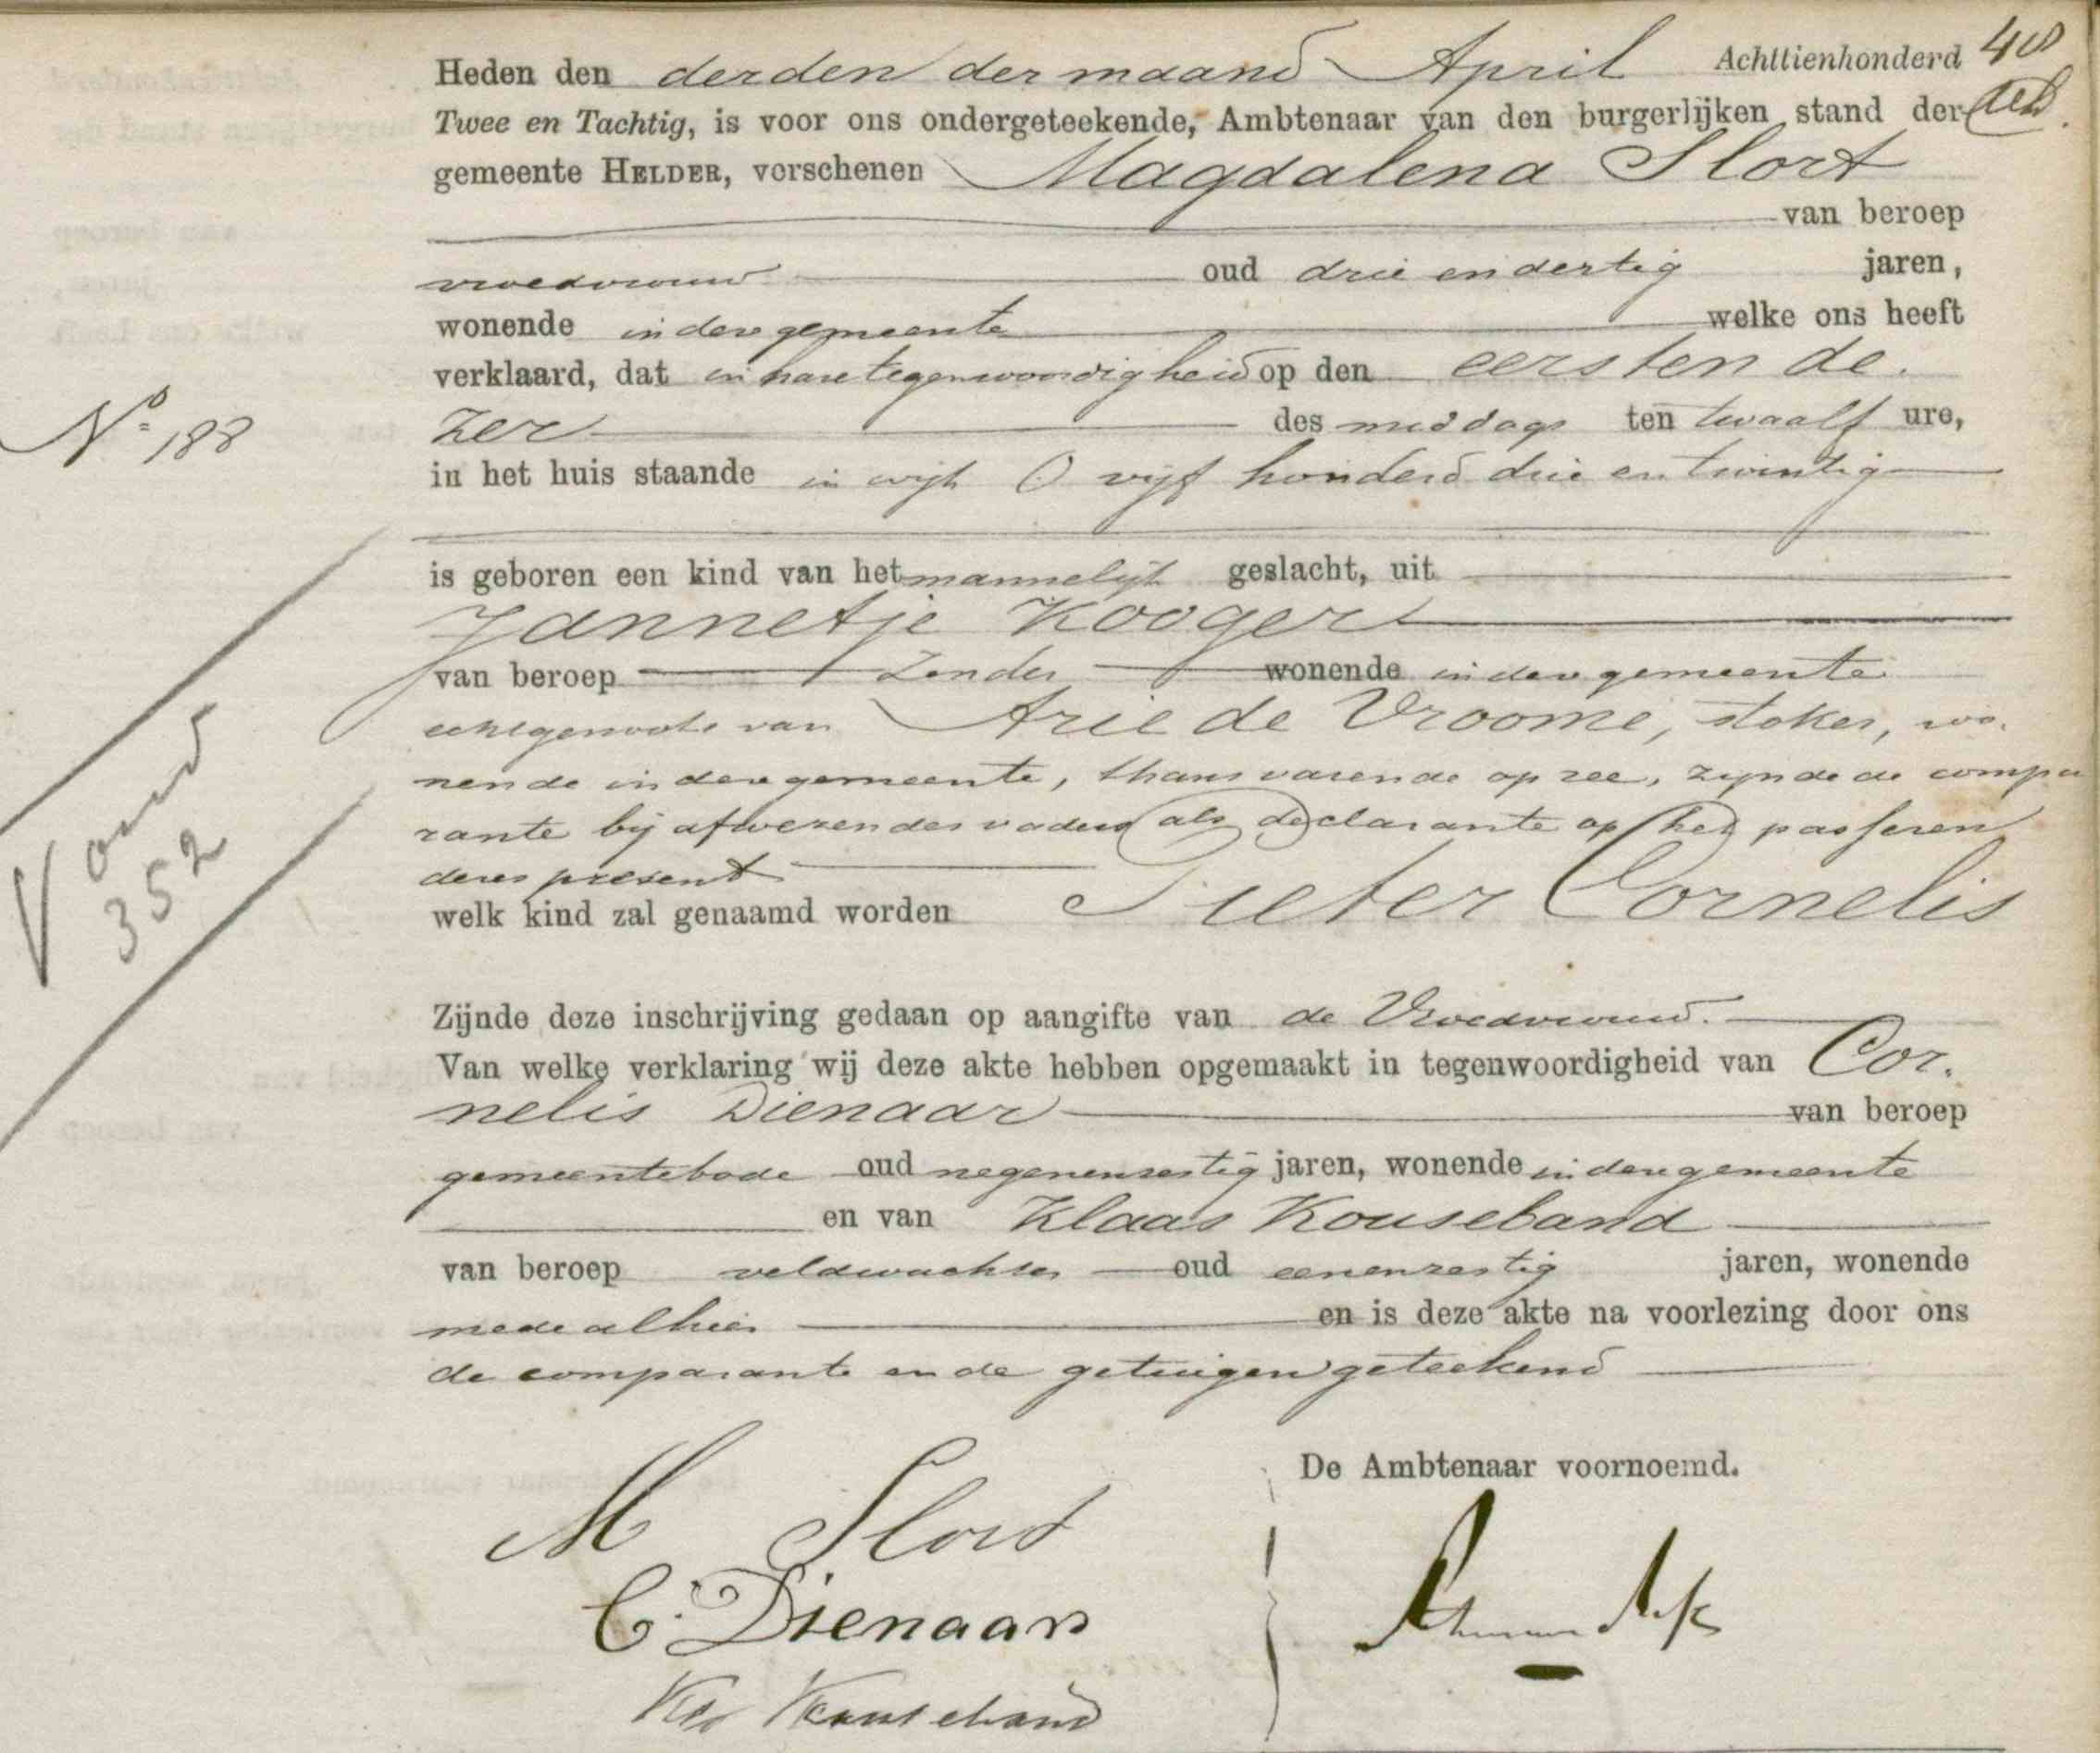 Heden den derden der maand April Achttienhonderd 48
Twee en Tachtig, is voor ons ondergeteekende, Ambtenaar van den burgerlijken stand der
gemeente HELDER, verschenen Magdalena Slort
van beroep
vroedvrouw oud drie en dertig jaren,
wonende in deze gemeente welke ons heeft
verklaard, dat in hare tegenwoordigheid op den eersten de
zer des middags ten twaalf ure,
in het huis staande in wijk O vijf honderd drie en twintig
is geboren een kind van het mannelijk geslacht, uit
Jannetje Kooger
van beroep zonder wonende in deze gemeente
echtgenoote van Arie de Vroome, stoker, wo-
nende in deze gemeente, thans varende op zee, zijnde de compa
rante bij afwezen des vaders als declarante op het passeren
dezes present
welk kind zal genaamd worden Pieter Cornelis
Zijnde deze inschrijving gedaan op aangifte van de Vroedvrouw.
Van welke verklaring wij deze akte hebben opgemaakt in tegenwoordigheid van Cor.
nelis Dienaar van beroep
gemeentebode oud negenenzestig jaren, wonende in deze gemeente
en van Klaas Kouseband
van beroep veldwachter oud eenenzestig jaren, wonende
mede alhier en is deze akte na voorlezing door ons
de comparante en de getuigen geteekend
De Ambtenaar voornoemd.
M Slort
C. Dienaar
Kouseband
No 188
352